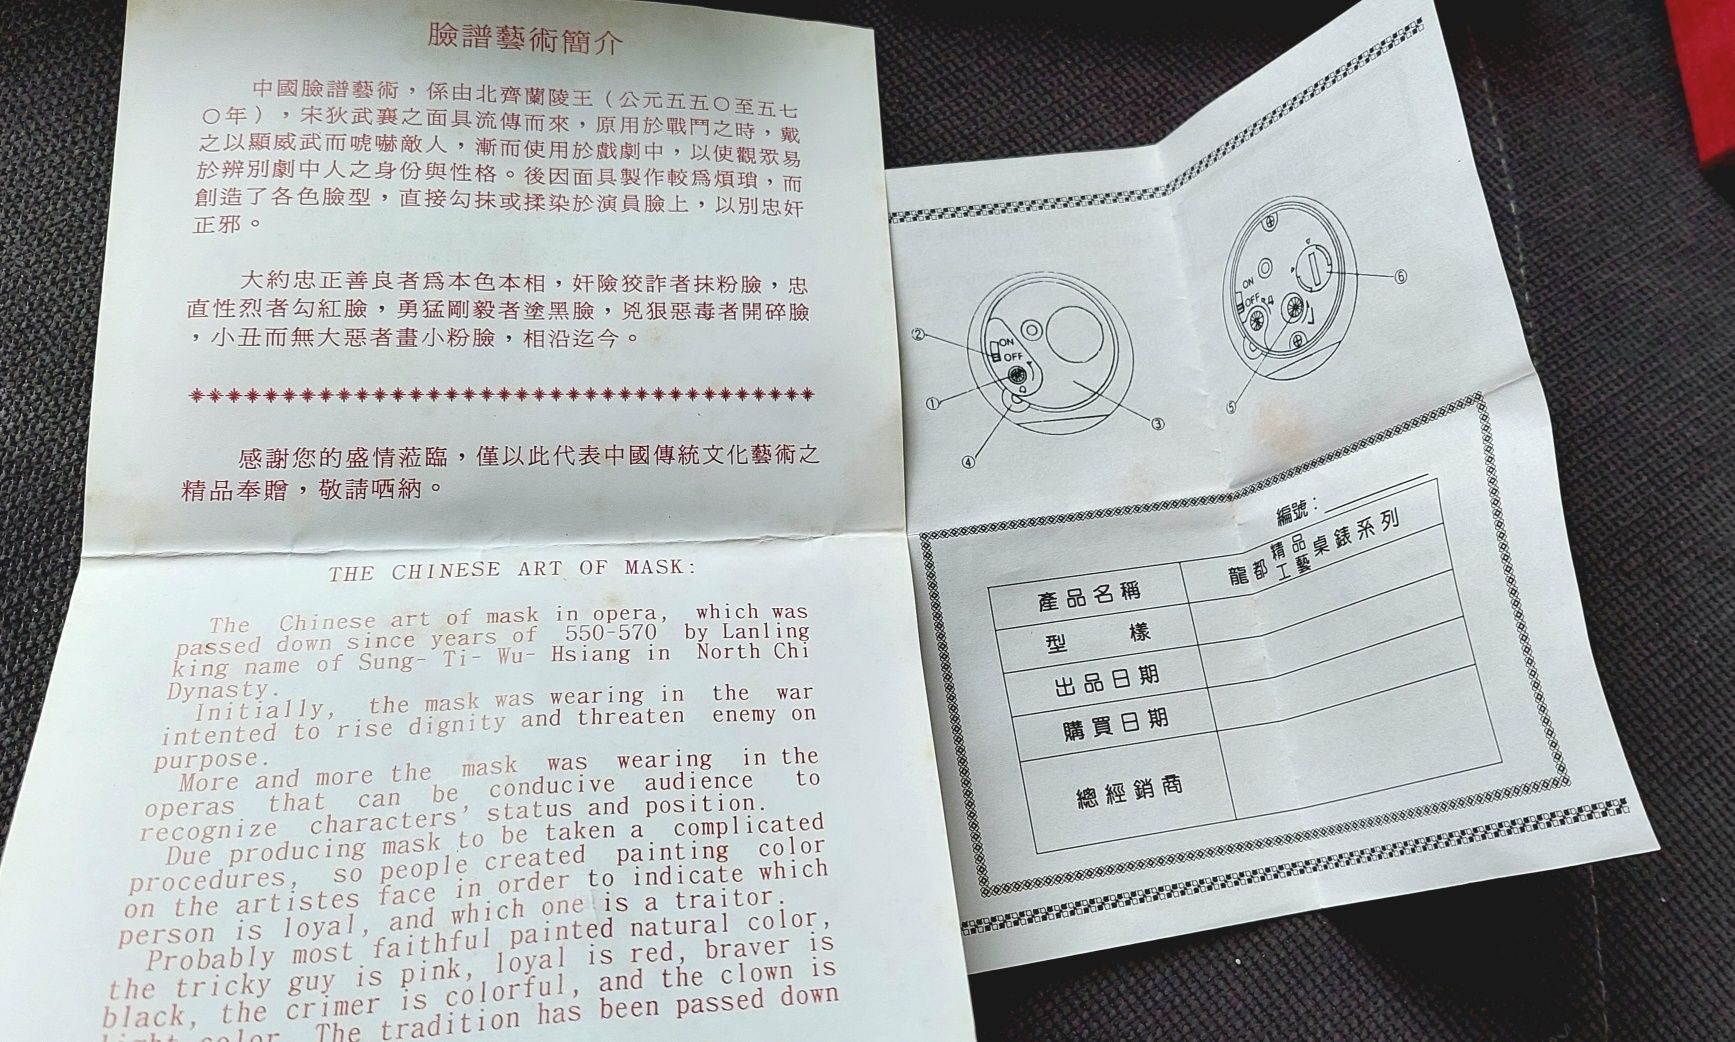 臉譜藝術簡介
中國臉譜藝術，係由北齊蘭陵王（公元五五〇至五七
〇年），宋狄武襄之面具流傳而來，原用於戰鬥之時，戴
之以顯威武而唬嚇敵人，漸而使用於戲劇中，以使觀眾易
於辨別劇中人之身份與性格。後因面具製作較為煩瑣，而
創造了各色臉型，直接勾抹或揉染於演員臉上，以別忠奸
正邪。
大約忠正善良者為本色本相，奸險狡詐者抹粉臉，忠
直性烈者勾紅臉，勇猛剛毅者塗黑臉，兇狠惡毒者開碎臉
，小丑而無大惡者畫小粉臉，相沿迄今。
感謝您的盛情蒞臨，僅以此代表中國傳統文化藝術之
精品奉贈，敬請哂納。
THE CHINESE ART OF MASK:
The Chinese art of mask in opera, which was
passed down since years of 550-570 by Lanling
king name of Sung- Ti- Wu- Hsiang in North Chi
Dynasty.
Initially, the mask was wearing in the war
intented to rise dignity and threaten enemy on
purpose.
More and more the mask was wearing in the
operas that can be conducive audience to
recognize characters' status and position.
Due producing mask to be taken a complicated
procedures, so people created painting color
on the artistes face in order to indicate which
person is loyal, and which one is a traitor.
Probably most faithful painted natural color,
the tricky guy is pink, loyal is red, braver is
black, the crimer is colorful, and the clown is
light color. The tradition has been passed down
②
ON
OFF
①
③
④
ON
OFF
⑥
⑤
編號：
產品名稱
龍都精品工藝桌錶系列
型樣
出品日期
購買日期
總經銷商